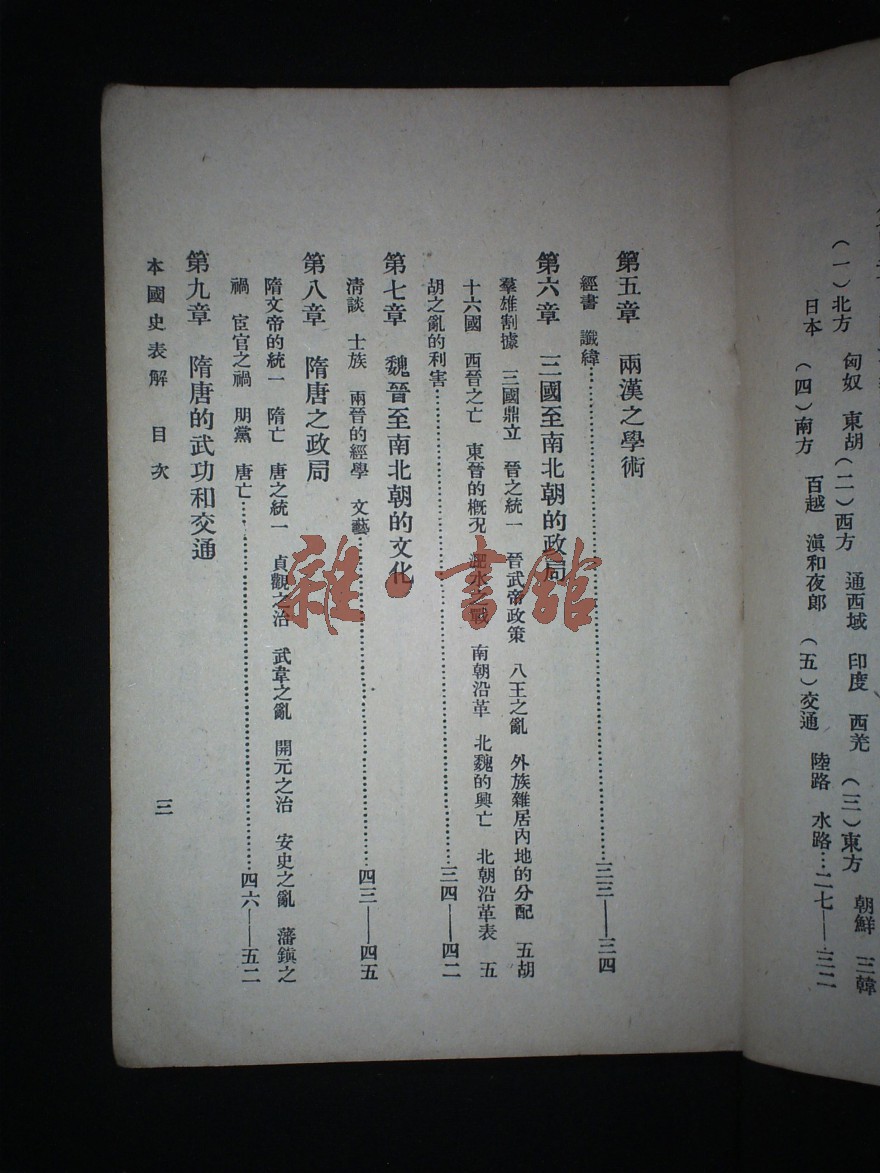 (一)北方 匈奴 東胡(二)西方 通西域 印度 西羌 (三)東方 朝鮮 三韓
日本 (四)南方 百越 滇和夜郎 (五)交通 陸路 水路…二七——三二
第五章 兩漢之學術
經書 讖緯……三三——三四
第六章 三國至南北朝的政局
羣雄割據 三國鼎立 晉之統一 晉武帝政策 八王之亂 外族雜居內地的分配 五胡
十六國 西晉之亡 東晉的概況 淝水之戰 南朝沿革 北魏的興亡 北朝沿革表 五
胡之亂的利害……三四——四二
第七章 魏晉至南北朝的文化
清談 士族 兩晉的經學 文藝……四三——四五
第八章 隋唐之政局
隋文帝的統一 隋亡 唐之統一 貞觀之治 武韋之亂 開元之治 安史之亂 藩鎮之
禍 宦官之禍 朋黨 唐亡……四六——五二
第九章 隋唐的武功和交通
本國史表解 目次 三
雜·書館